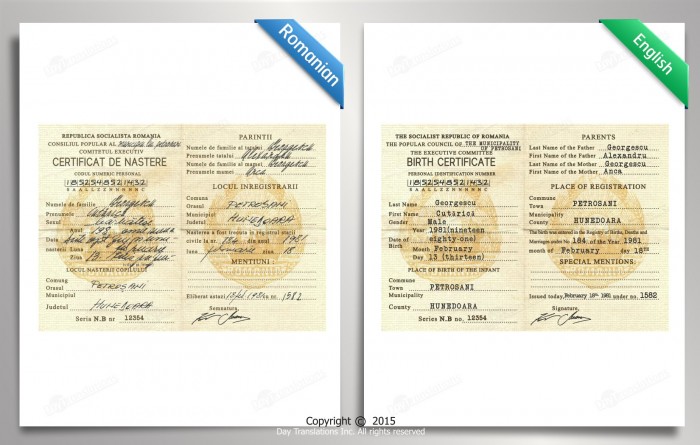 Romanian
REPUBLICA SOCIALISTA ROMANIA
CONSILIUL POPULAR AL
COMITETUL EXECUTIV
CERTIFICAT DE NASTERE
CODUL NUMERIC PERSONAL
S A A L L Z Z N N N N N C
Numele de familie Georgescu
Prenumele
Sexul
Anul
Data
nastarii Luna
Ziua
LOCUL NASTERII COPILULUI
Comuna
Orasul PETROSANI
Municipiul
Judetul HUNEDOARA
Seria N.B nr 12354
PARINTII
Numele de familie al tatalui Georgescu
Prenumele tatalui
Numele de familie al mamei Georgescu
Prenumele mamei Anca
LOCUL INREGISTRARII
Comuna
Orasul PETROSANI
Municipiul
Judetul HUNEDOARA
Nasterea a fost trecuta in registrul starii
civile la nr. 184 din 1981
luna februarie ziua 18
MENTIUNI :
Eliberat astazi nr. 1582
Semnatura,
English
THE SOCIALIST REPUBLIC OF ROMANIA
THE POPULAR COUNCIL OF THE MUNICIPALITY OF PETROSANI
THE EXECUTIVE COMMITTEE
BIRTH CERTIFICATE
PERSONAL IDENTIFICATION NUMBER
S A A L L Z Z N N N N N C
Last Name Georgescu
First Name Cutarici
Gender Male
Year 1981(nineteen
Date of eighty-one)
Birth Month February
Day 13 (thirteen)
PLACE OF BIRTH OF THE INFANT
Commune
Town PETROSANI
Municipality
County HUNEDOARA
Series N.B no. 12354
PARENTS
Last Name of the Father Georgescu
First Name of the Father Alexandru
Last Name of the Mother Georgescu
First Name of the Mother Anca
PLACE OF REGISTRATION
Commune
Town PETROSANI
Municipality
County HUNEDOARA
The Birth was entered in the Registry of Births, Deaths and
Marriages under No. 184 of the Year 1981
month of February day 18TH
SPECIAL MENTIONS:
Issued today, February 18th 1981 under no. 1582
Signature,
Copyright © 2015
Day Translations Inc. All rights reserved